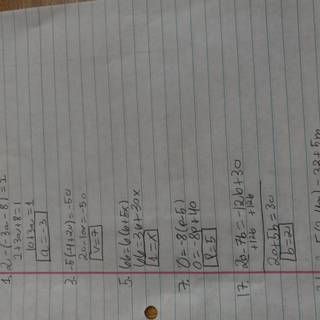 1. 2-(-3a-8)=1
2+3a+8=1
10+3a=1
a=-3
3. -5(-4+2v)=-50
20-10v=-50
v=7
5. 66=6(6+5x)
66=36+30x
1=x
7. 0=-8(p-5)
0=-8p+40
p=5
17. 20-7b=-12b+30
+12b +12b
20+5b=30
b=2